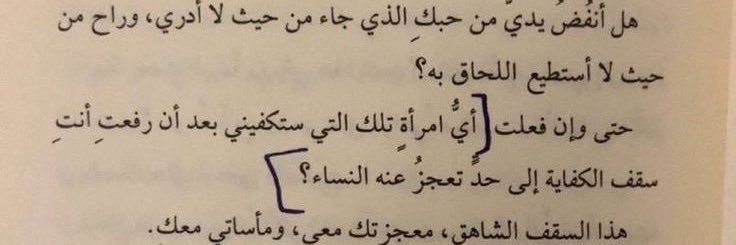 هل أنفُضُ يديَّ من حبكِ الذي جاء من حيث لا أدري، وراح من
حيث لا أستطيع اللحاق به؟
حتى وإن فعلت أيُّ امرأةٍ تلك التي ستكفيني بعد أن رفعتِ أنتِ
سقف الكفاية إلى حدٍّ تعجزُ عنه النساء؟
هذا السقف الشاهق، معجزتك معي، ومأساتي معك.